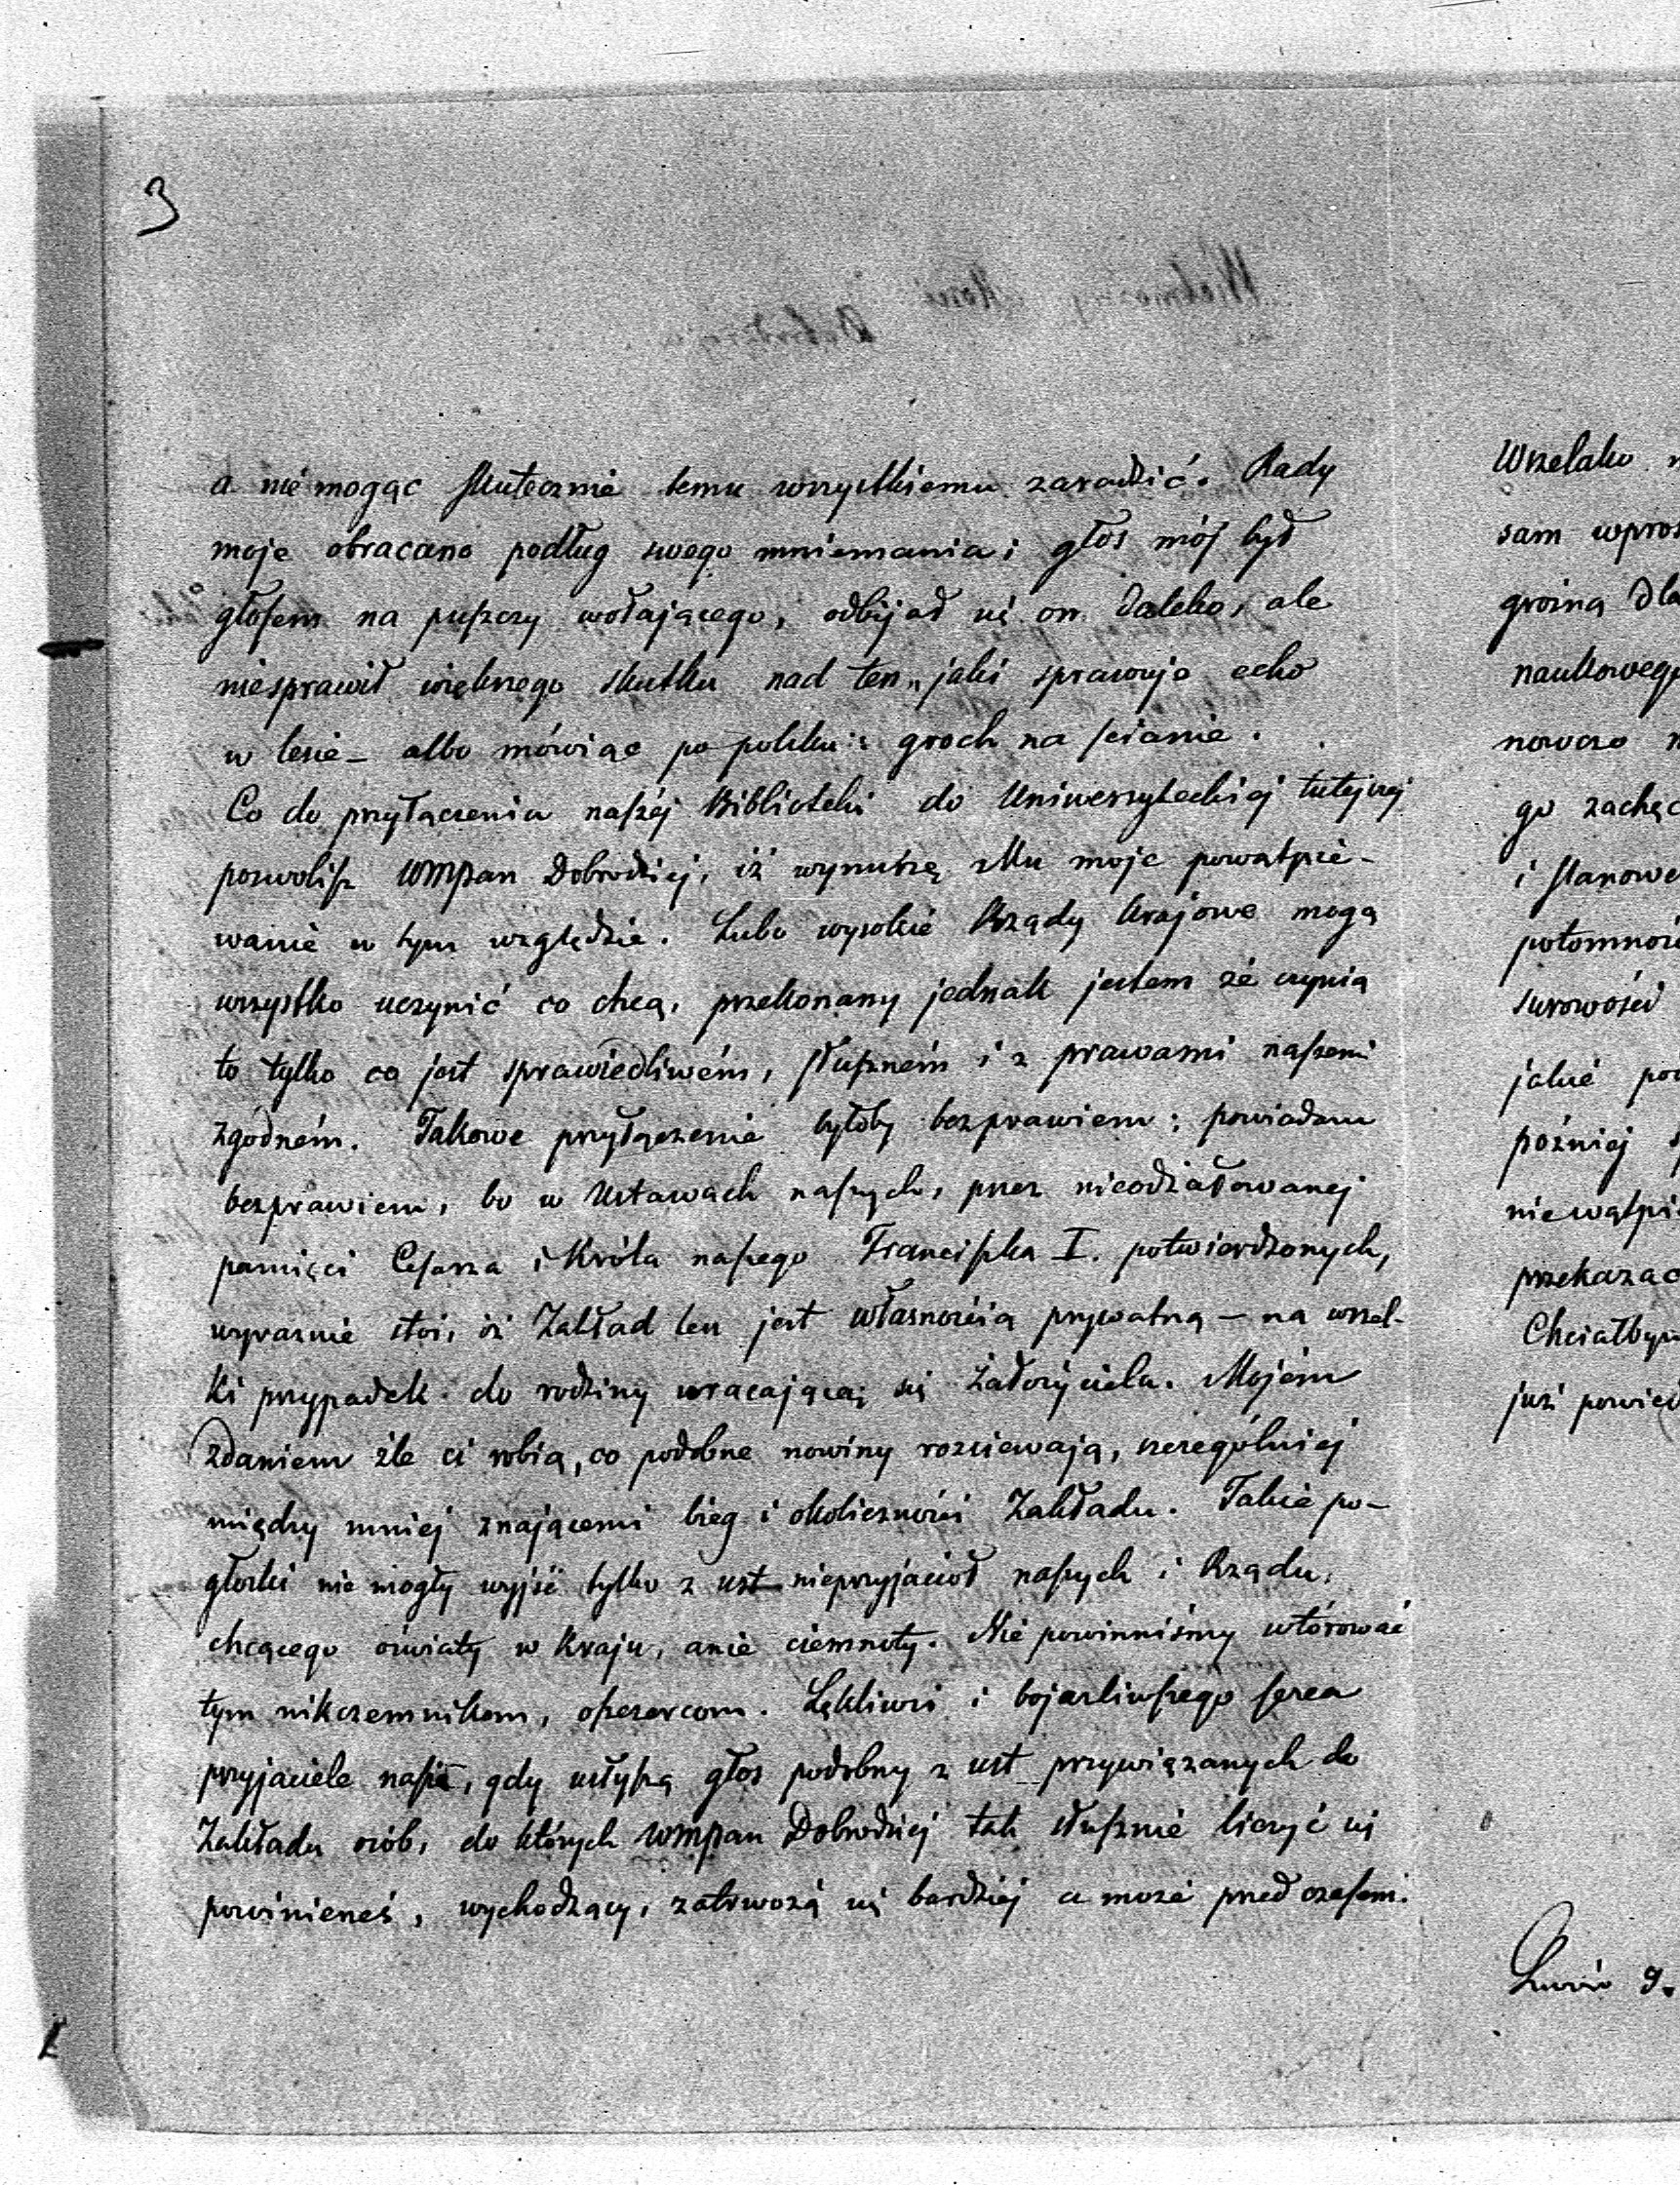 3
a nie mogąc skutecznie temu wszystkiemu zaradzić. Rady
moje obracano podług swego mniemania i głos mój był
głosem na puszczy wołającego, odbijał się on daleko, ale
niesprawił większego skutku nad ten, jaki sprawuje echo
w lesie – albo mówiąc po polsku: groch na ścianie.
Co do przyłączenia naszéj Biblioteki do Uniwersyteckiej tutejszej
pozwolisz WMPan Dobrodziej, iż wynurzę Mu moje powątpie-
wanie w tym względzie. Lubo wysokie Rządy krajowe mogą
wszystko uczynić co chcą, przekonany jednak jestem że czynią
to tylko co jest sprawiedliwém, słuszném i z prawami naszemi
zgodném. Takowe przyłączenie byłoby bezprawiem; powiadam
bezprawiem, bo w Ustawach naszych, przez nieodżałowanej
pamięci Cesarza i Króla naszego Franciszka I. potwierdzonych,
wyraznie stoi, iż Zakład ten jest własnością prywatną – na wszel-
ki przypadek do rodziny wracającą się Założyciela. Mojém
zdaniem źle ci robią, co podobne nowiny rozsiewają, szczególniej
między mniej znającemi bieg i okoliczności Zakładu. Takie po-
głoski nie mogły wyjść tylko z ust nieprzyjaciół naszych i Rządu,
chcącego oświaty w Kraju, anie ciemnoty. Nie powinniśmy wtórować
tym nikczemnikom, oszczercom. Lękliwsi i bojaźliwszego serca
przyjaciele nasi, gdy usłyszą głos podobny z ust przywiązanych do
Zakładu osób, do których WMPan Dobrodziej tak słusznie liczyć się
powinieneś, wychodzący, zatrwożą się bardziej a może przed czasem.
Wszelako
sam wpros
groiną dla
naukowego
nowczo
go zachęc
i stanow
potomnoś
surowości
jakié po
poźniej
niewątpi
przekazać
Chciałbym
już powied
Lwów 9.